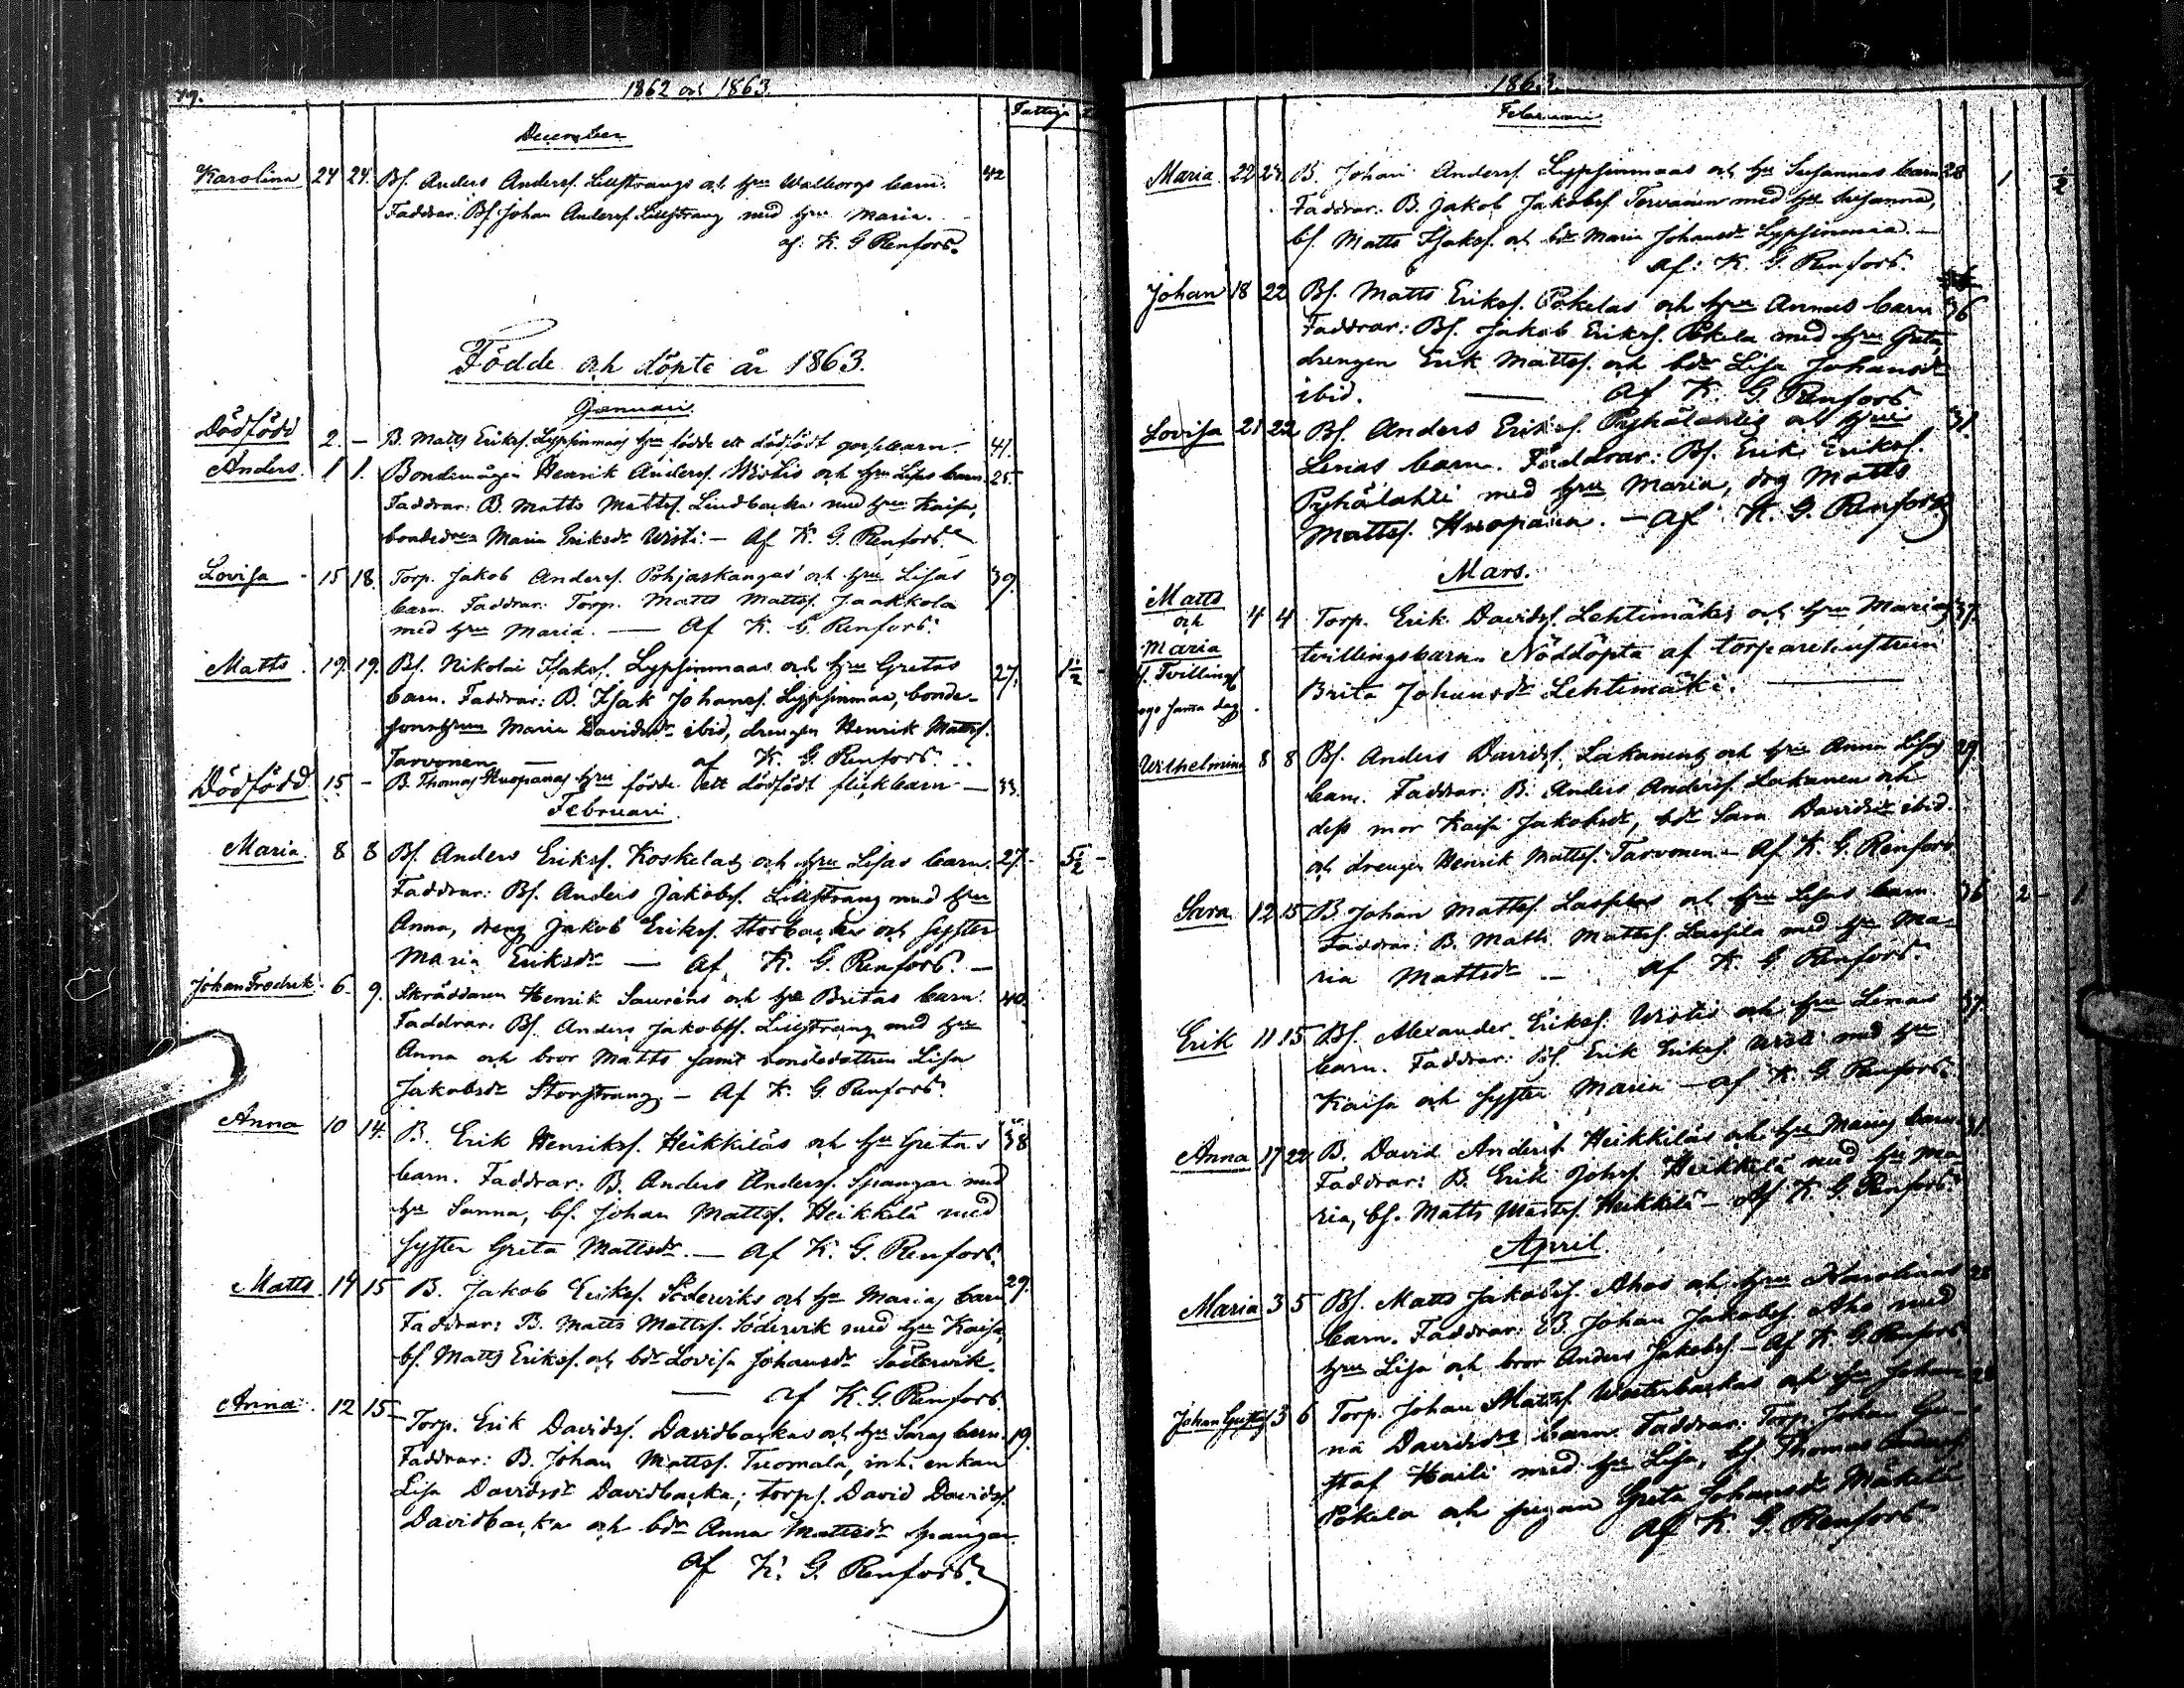 79.
1862 och 1863.
Fattiga
December
Karolina 24 24. Bs. Anders Anderss. Lillstrangs och hru Walborgs barn. 42
Faddrar: Bs. Johan Anderss. Lillstrang med hru Maria.
af: K. G Renfors.
Födde och döpte år 1863.
Januari.
Dödfödd 2. – B. Matts Erikss. Lypsinmaas hru födde ett dödfödt gossebarn – 41.
Anders. 1 1. Bondemågen Henrik Anderss. Wirtis och hru Lisas barn. 25
Faddrar: B. Matts Mattss. Lindbacka med hru Kaisa,
bondedrn Maria Eriksdr Wirti. – Af K. G. Renfors.
Lovisa 15 18. Torp. Jakob Anderss. Pohjaskangas och hru Lisas 39.
barn. Faddrar: Torp. Matts Mattss. Jaakkola
med hru Maria. — Af K. G. Renfors.
Matts 19. 19. Bs. Nikolai Isakss. Lypsinmaas och hru Gretas 27. 1½ –
barn. Faddrar: B. Isak Johanss. Lypsinmaa, bonde-
sonshrun Maria Davidsdr ibid, drengen Henrik Mattss.
Tarvonen — af K. G. Renfors.
Dödfödd. 15 – B. Thomas Huopanas hru födde ett dödfödt flickbarn — 33.
Februari.
Maria. 8 8 Bs. Anders Erikss. Koskelas och hru Lisas barn. 27. 5½ –
Faddrar: Bs. Anders Jakobs. Lillstrang med hru
Anna, dreng Jakob Erikss. Storbacka och syster
Maria Eriksdr — af K. G. Renfors. –
Johan Fredrik. 6. 9. Skräddaren Henrik Saurens och hru Britas barn. 40.
Faddrar: Bs. Anders Jakobss. Lillstrang med hru
Anna och bror Matts samt bondedottren Lisa
Jakobsdr Storstrang. – Af K. G. Renfors.
Anna 10 14. B. Erik Henrikss. Heikkiläs och hru Gretas 38
barn. Faddrar: B. Anders Anderss. Spangar med
hru Sanna, bs. Johan Mattss. Heikkilä med
syster Greta Mattsdr. — af K. G. Renfors.
Matts. 14 15 B. Jakob Erikss. Söderviks och hru Marias barn 29.
Faddrar: B. Matts Mattss. Södervik med hru Kaisa,
bs. Matts Erikss. och bdr Lovisa Johansdr Södervik.
— af K. G. Renfors.
Anna. 12 15 Torp. Erik Davidss. Davidbackas och hru Saras barn. 19.
Faddrar: B. Johan Mattss. Tuomala, inh. enkan
Lisa Davidsdr Davidbacka; torps. David Davidss.
Davidbacka och bdr Anna Mattsdr Spangar.
af K. G. Renfors.
1863.
Februari.
Maria 22 24. B. Johan Anderss. Lypsinmaas och hru Susannas barn 28 1 ½
Faddrar: B. Jakob Jakobss. Tervanen med hru Susanna,
bs. Matts Isakss. och bdr Maria Johansdr Lypsinmaa. –
af: K. G. Renfors.
Johan 18 22 Bs. Matts Erikss. Pokelas och hru Annas barn 36
Faddrar: Bs. Jakob Erikss. Pokela med hru Greta,
drengen Erik Mattss. och bdr Lisa Johansdr
ibid. — af K. G. Renfors
Lovisa 21 22 Bs. Anders Erikss. Pyhälahtis och hrus 31.
Lenas barn. Faddrar: Bs. Erik Erikss.
Pyhälahti med hru Maria, drg Matts
Mattss. Huopana. – af K. G. Renfors
Mars.
Matts
och
Maria 4 4 Torp. Erik Davidss. Lehtimäkis och hru Marias 37.
tvillingsbarn. Nöddöpta af torparehustrun
Brita Johansdr Lehtimäki. —
Tvilling
samma dag.
Wilhelmina 8 8 Bs. Anders Davidss. Lakanens och hru Anna Lisas 29.
barn. Faddrar: B. Anders Anderss. Lakanen och
dess mor Kaisa Jakobsdr, bdr Sara Davidsdr ibid.
och drengen Henrik Mattss. Tarvonen – af K. G. Renfors
Sara 12 15 B. Johan Mattss. Lassilas och hru Lisas barn. 36 2 – 1
Faddrar: B. Matts Mattss. Lassila med hru Ma-
ria Mattsdr — af K. G. Renfors.
Erik 11 15 Bs. Alexander Erikss. Wirtis och hru Lenas 37.
barn. Faddrar: Bs. Erik Erikss. Wirti med hru
Kaisa och syster Maria – af K. G. Renfors.
Anna 17 22 B. David Anderss. Heikkiläs och hru Marias barn. 31.
Faddrar: B. Erik Johss. Heikkilä med hru Ma-
ria, bs. Matts Mattss. Heikkilä – Af K. G. Renfors.
April.
Maria 3 5 Bs. Matts Jakobss. Ahos och hru Karolinas 28
barn. Faddrar: B. Johan Jakobss. Aho med
hru Lisa och bror Anders Jakobss – Af K. G. Renfors
Johan Gustaf 3 6 Torp. Johan Mattss. Westerbackas och hru Johan- 28
na Davidsdrs barn. Faddrar: Torp. Johan Gu-
staf Haili med hru Lisa, bs. Thomas Anderss.
Pokela och pigan Greta Johansdr Mäkelä
af K. G. Renfors